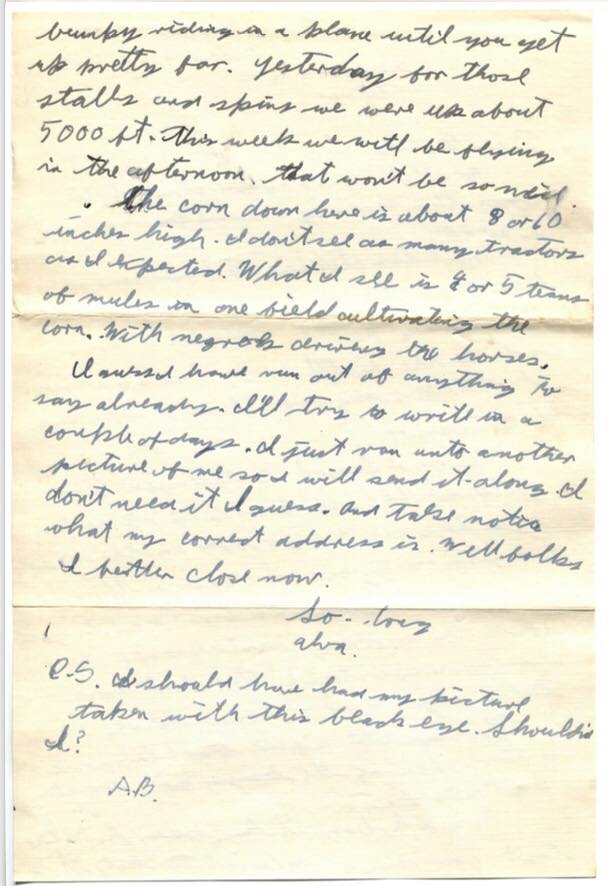 bumpy riding in a plane until you get
up pretty far. Yesterday for those
stalls and spins we were up about
5000 ft. This week we will be flying
in the afternoon. that won't be so nice.
The corn down here is about 8 or 10
inches high. I don't see as many tractors
as I expected. What I see is 4 or 5 teams
of mules in one field cultivating the
corn. With negroes driving the horses.
I guess I have run out of anything to
say already. I'll try to write in a
couple of days. I just ran unto another
picture of me so I will send it along. I
don't need it I guess. And take notice
what my correct address is. Well folks
I better close now.
So-long
Alva.
P.S. I should have had my picture
taken with this black eye. Shouldn't
I?
A.B.